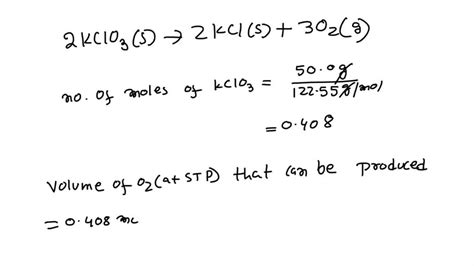 2KClO3(s) → 2KCl(s) + 3O2(g)
no. of moles of KClO3 = 50.0g / 122.55g/mol
= 0.408
Volume of O2(at STP) that can be produced
= 0.408 mo